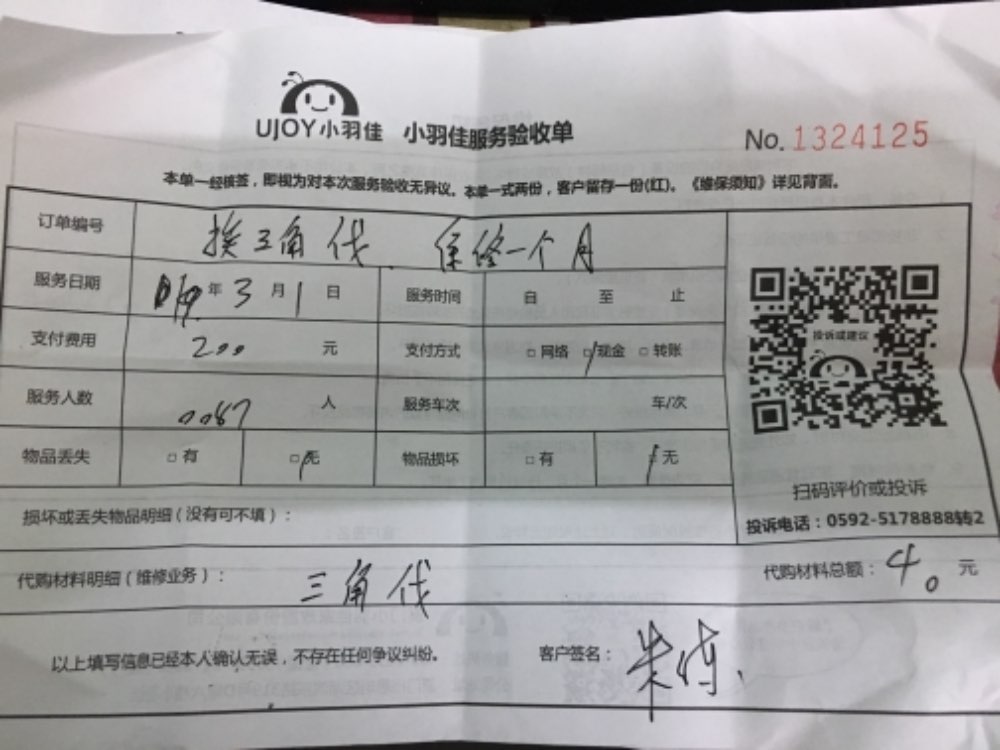 UJOY小羽佳 小羽佳服务验收单
No. 1324125
本单一经核签，即视为对本次服务验收无异议。本单一式两份，客户留存一份(红)。《维保须知》详见背面。
订单编号 换三角伐、保修一个月
服务日期 019年3月1日 服务时间 自 至 止
支付费用 200 元 支付方式 □网络 □现金 □转账
服务人数 0087 人 服务车次 车/次
物品丢失 □有 □无 物品损坏 □有 □无
投诉或建议
扫码评价或投诉
损坏或丢失物品明细（没有可不填）：
投诉电话：0592-5178888转2
代购材料明细（维修业务）： 三角伐 代购材料总额：40 元
以上填写信息已经本人确认无误，不存在任何争议纠纷。 客户签名：朱